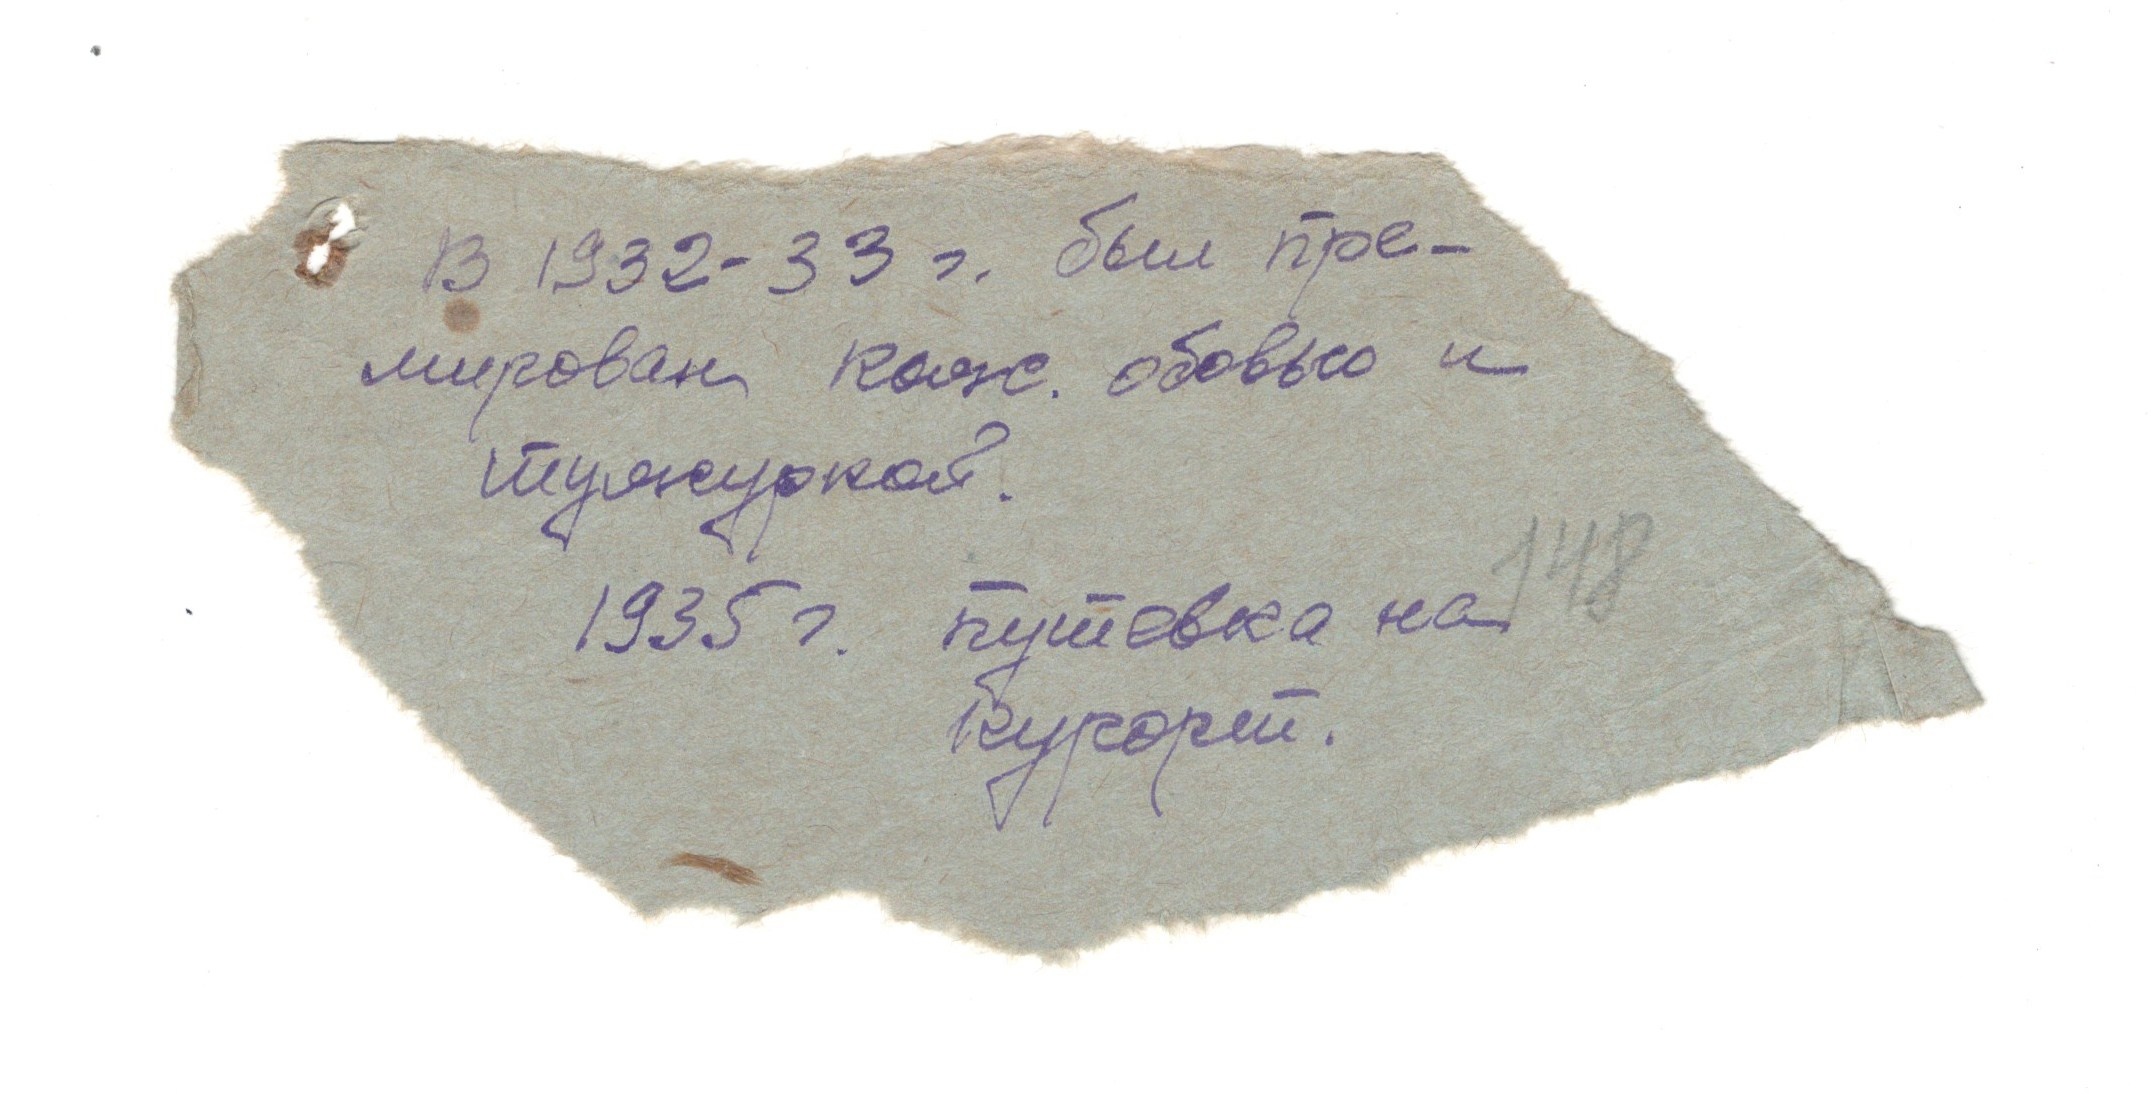 В 1932-33 г. был пре-
мирован кож. обовью и
тужуркой.
148
1935 г. путевка на
курорт.